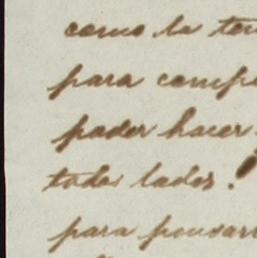 como la ten
para compe
poder hacer
todos lados.
para pensar